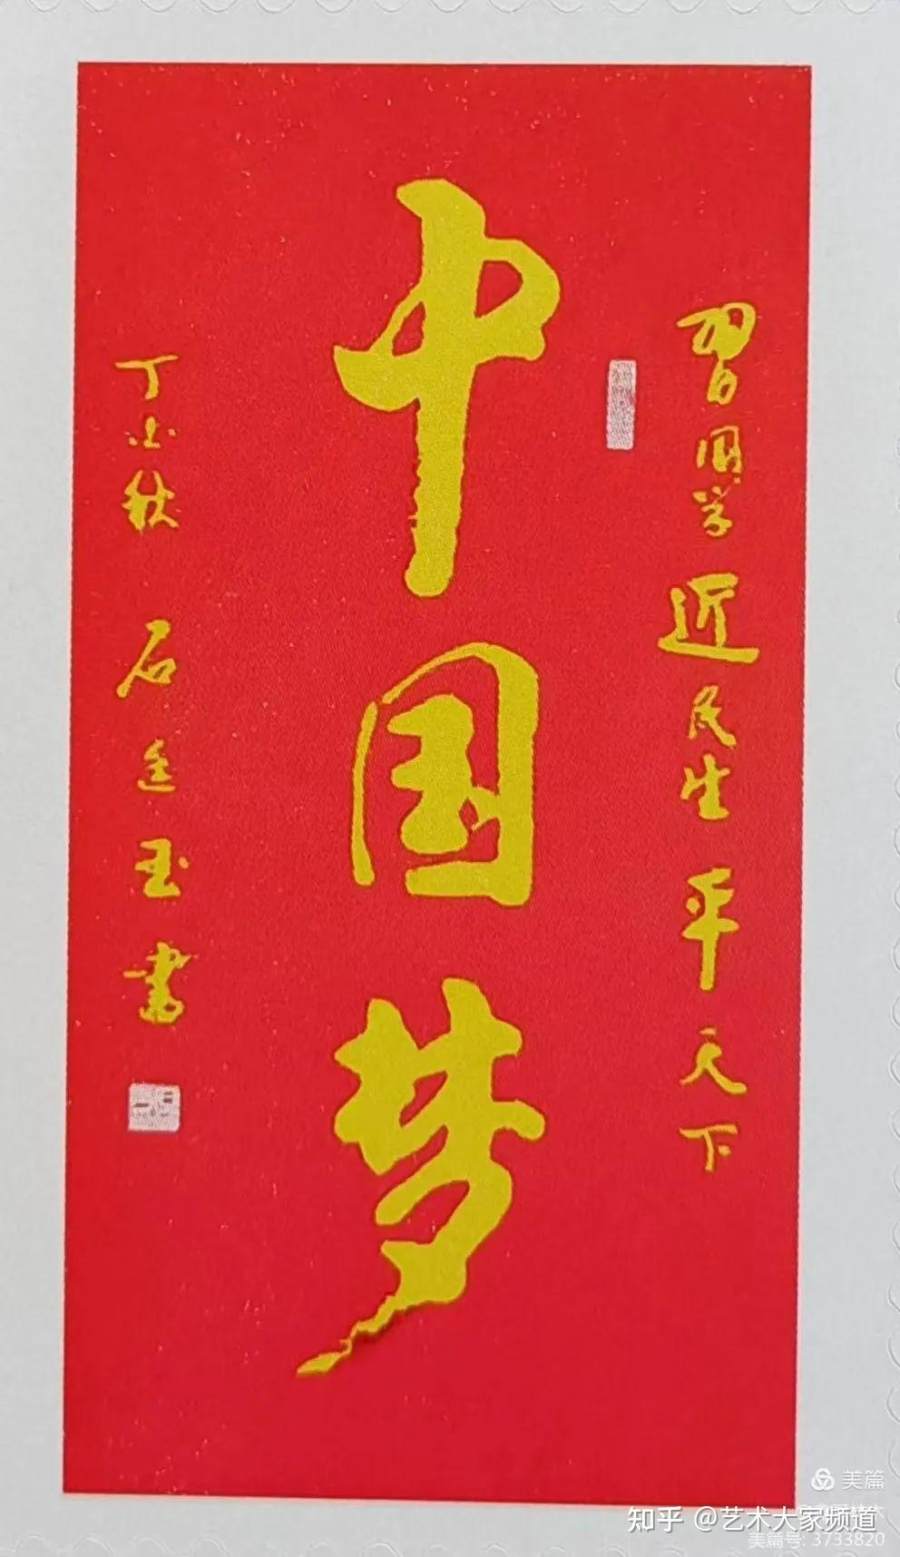 習国学近民生平天下
中国梦
丁小秋 石玉書
美篇
知乎 @艺术大家频道
美篇号: 3733820